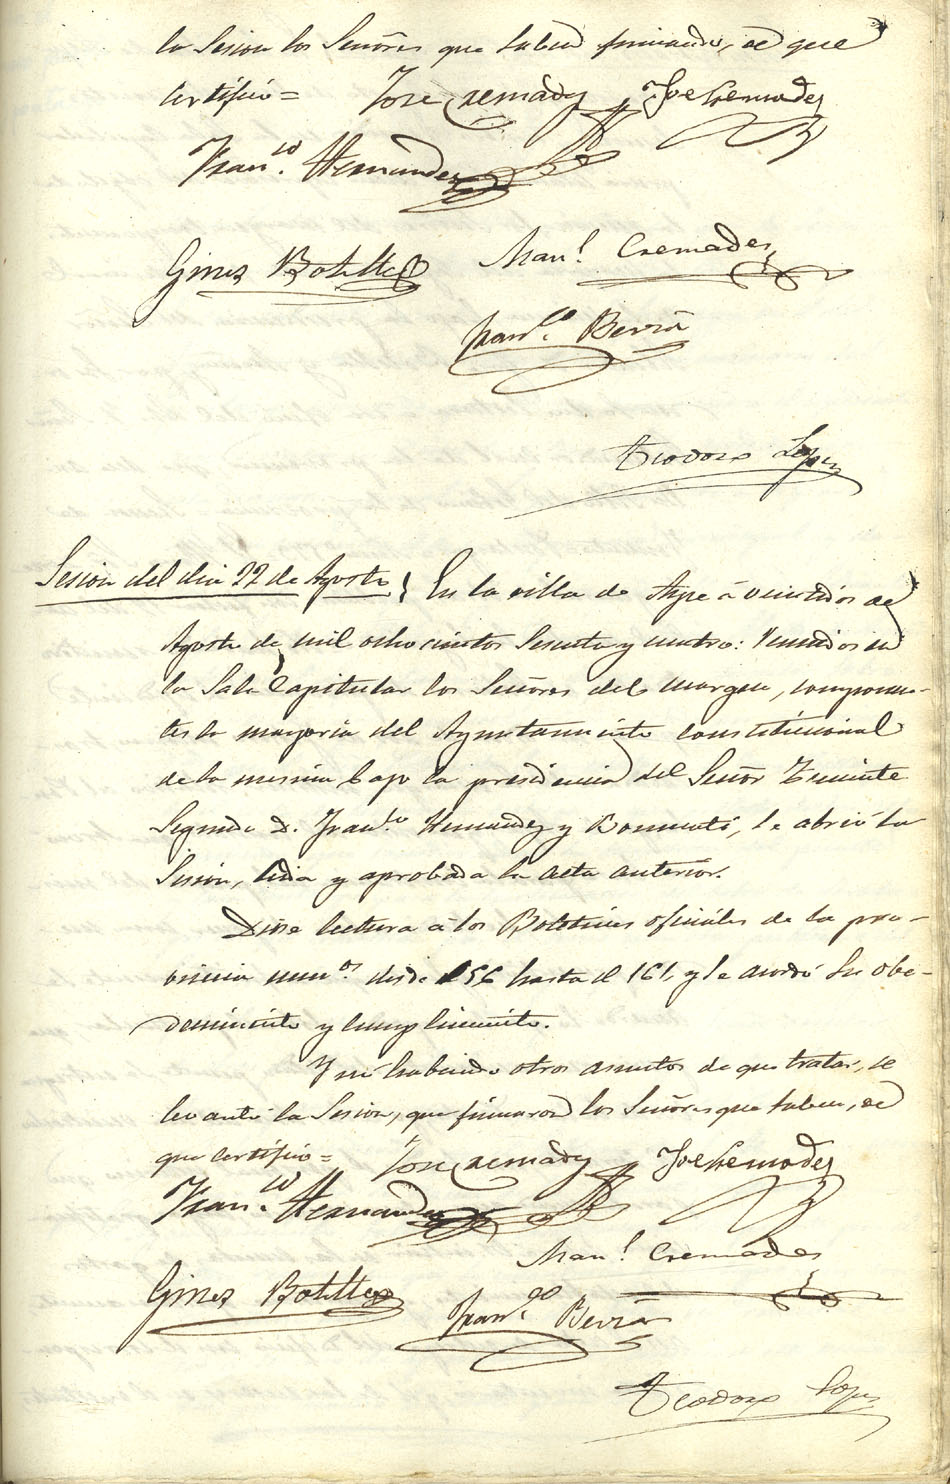 la Sesion los Señores que saben firmar, de que
certifico =
José Cremades José Cremades
Franco. Hernandez
Gines Botella Manl. Cremades
Franco. Berná
Teodoro Lopez
Sesion del dia 22 de Agosto } En la villa de Aspe á veintidos de
Agosto de mil ochocientos sesenta y cuatro: reunidos en
la Sala Capitular los Señores del margen, componen-
tes la mayoria del Ayuntamiento constitucional
de la misma bajo la presidencia del Señor Teniente
Segundo D. Franco. Hernandez y se abrió la
Sesion, leida y aprobada la acta anterior.
Diose lectura á los Boletines oficiales de la pro-
vincia numos. desde 156 hasta el 161, y se acordó su obe-
decimiento y cumplimiento.
Y no habiendo otros asuntos de que tratar, se
levantó la Sesion, que firmaron los Señores que saben, de
que certifico =
José Cremades José Cremades
Franco. Hernandez
Manl. Cremades
Gines Botella Franco. Berná
Teodoro Lopez